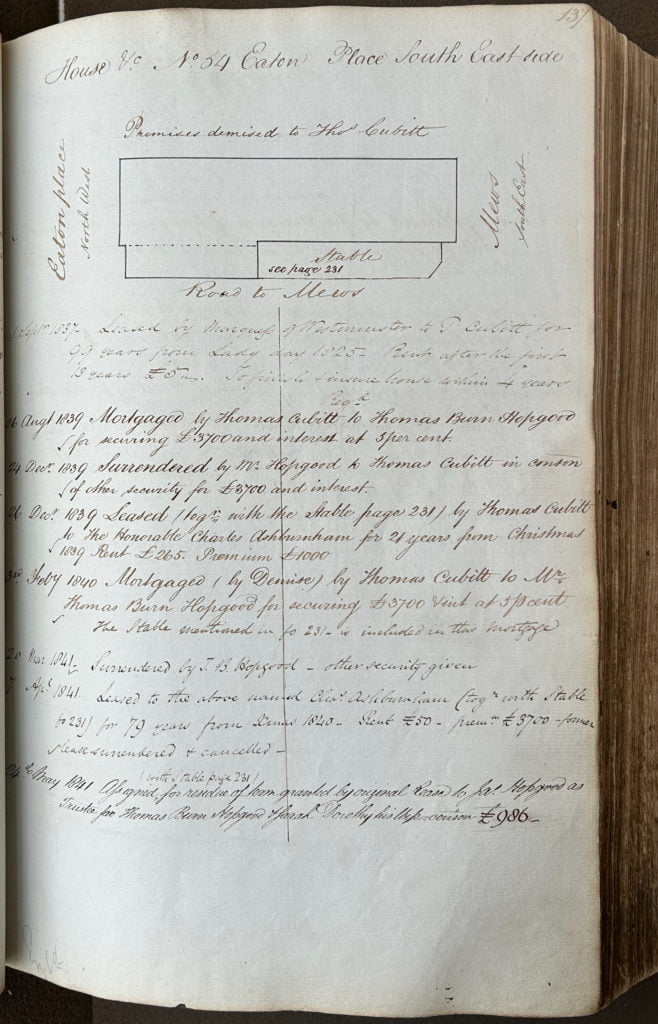 137
House &c No 54 Eaton Place South East side
Premises demised to Thos Cubitt
Eaton place
North West
Mews
South East
Stable
see page 231
Road to Mews
Septr 1837 Leased by Marquess of Westminster to T Cubitt for
99 years from Lady day 1825 - Rent after the first
13 years £5 -. To finish & insure house within 4 years
Regd
26 Augt 1839 Mortgaged by Thomas Cubitt to Thomas Burn Hopgood
for securing £3700 and interest at 5 per cent.
24 Decr. 1839 Surrendered by Mr. Hopgood to Thomas Cubitt in conson
of other security for £3700 and interest.
26 Decr. 1839 Leased (togr. with the Stable page 231) by Thomas Cubitt
to The Honorable Charles Ashburnham for 21 years from Christmas
1839 Rent £265. Premium £1000
3rd Feby 1840 Mortgaged (by Demise) by Thomas Cubitt to Mr.
Thomas Burn Hopgood for securing £3700 & int at 5 p cent
The Stable mentioned in fo 231 - is included in this Mortgage
20 Mar 1841 - Surrendered by T. B. Hopgood - other security given
7 Apl 1841. Leased to the above named Chas. Ashburnham (togr with Stable
fo 231) for 79 years from Xmas 1840 - Rent £50 - premm £3700 - former
lease surrendered & cancelled -
(with Stable page 231)
24th May 1841 Assigned for residue of term granted by original Lease to Jas. Hopgood as
Trustee for Thomas Burn Hopgood & Sarah Dorothy his Wife - conson £986 -